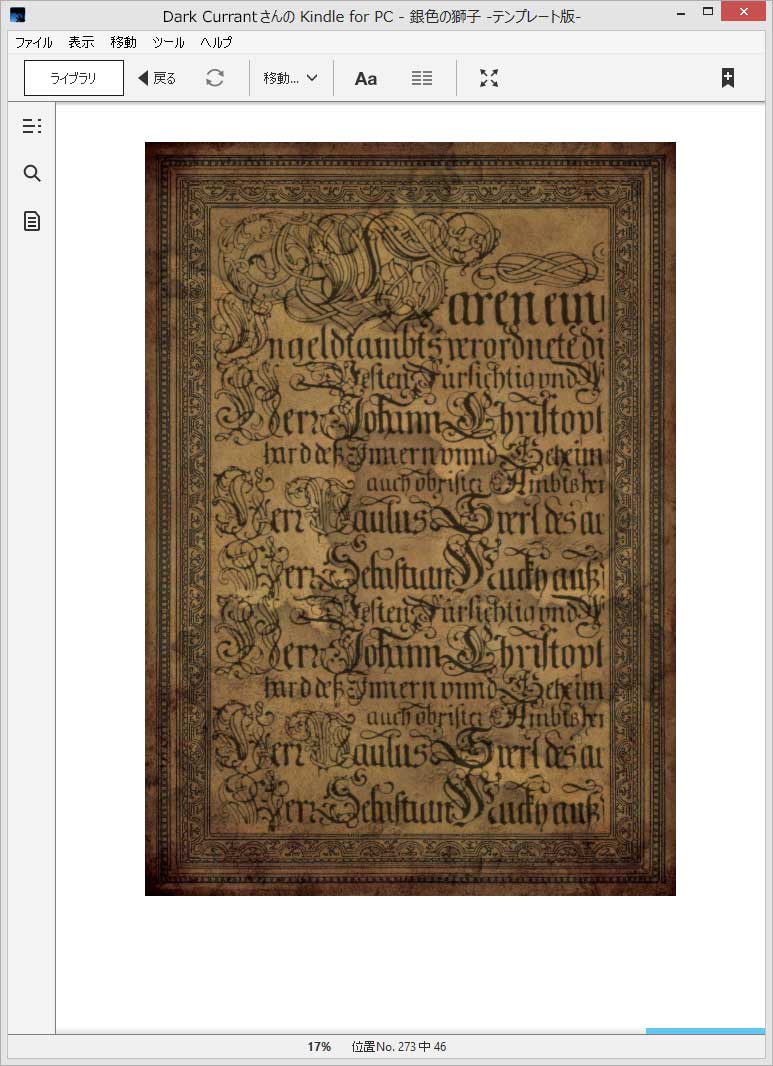 Dark Currantさんの Kindle for PC - 銀色の獅子 -テンプレート版-
ファイル 表示 移動 ツール ヘルプ
ライブラリ 戻る 移動... Aa
aren
verordnete di
Vesten Fürsichtig vnd
Herr Johann Christoph
hard deß Innern vnnd Geheim
auch obrister Ambtsher
Herr Paulus des
Herr auß
Vesten Fürsichtig vnd
Herr Johann Christoph
hard deß Innern vnnd Geheim
auch obrister Ambtsher
Herr Paulus des
Herr auß
17% 位置No. 273 中 46